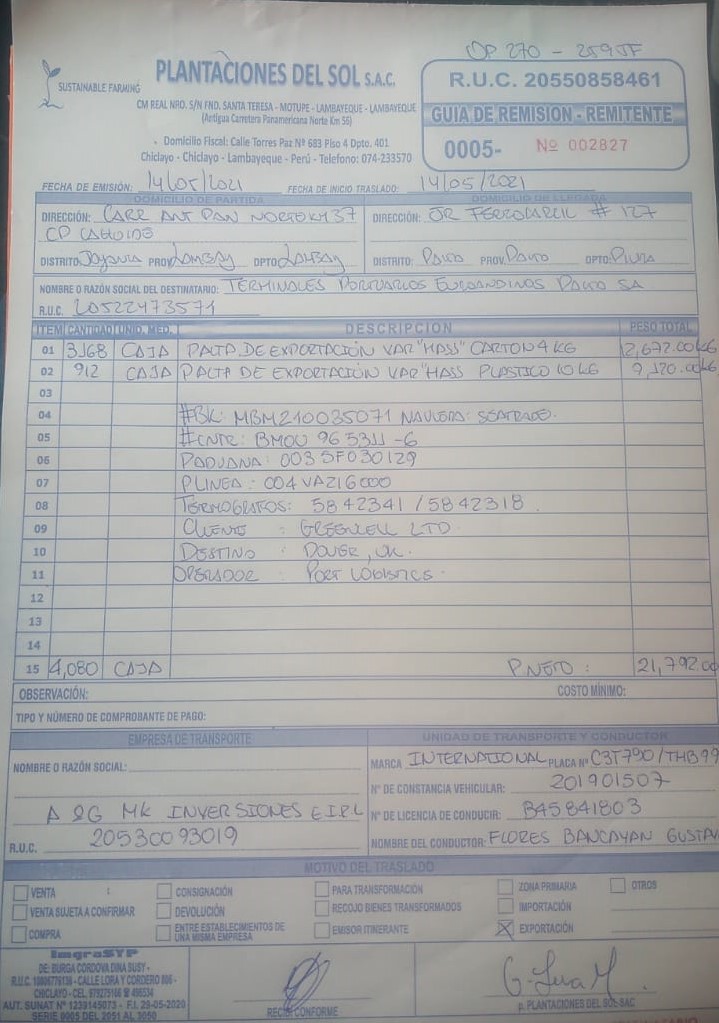 OP 270 - 259JF
SUSTAINABLE FARMING
PLANTACIONES DEL SOL S.A.C.
CM REAL NRO. S/N FND. SANTA TERESA - MOTUPE - LAMBAYEQUE - LAMBAYEQUE
(Antigua Carretera Panamericana Norte Km 56)
Domicilio Fiscal: Calle Torres Paz Nº 683 Piso 4 Dpto. 401
Chiclayo - Chiclayo - Lambayeque - Perú - Telefono: 074-233570
R.U.C. 20550858461
GUIA DE REMISION - REMITENTE
0005- Nº 002827
FECHA DE EMISIÓN: 14/05/2021 FECHA DE INICIO TRASLADO: 14/05/2021
DOMICILIO DE PARTIDA
DIRECCIÓN: CARR ANT PAN NORTE KM 37
CP CAHUIDE
DISTRITO: Jayanca PROV. Lambay DPTO: Lambay
DOMICILIO DE LLEGADA
DIRECCIÓN: JR FERROCARRIL # 127
DISTRITO: Paita PROV. Paita DPTO: Piura
NOMBRE O RAZÓN SOCIAL DEL DESTINATARIO: TERMINALES PORTUARIOS EUROANDINOS PAITA SA
R.U.C. 20522473571
ITEM CANTIDAD UNID. MED. DESCRIPCION PESO TOTAL
01 3,168 CAJA PALTA DE EXPORTACIÓN VAR "HASS" CARTON 4 KG 12,672.00 KG
02 912 CAJA PALTA DE EXPORTACIÓN VAR "HASS PLASTICO 10 KG 9,120.00 KG
03
04 #BK: MBM210035071 NAVIERA: SEATRADE.
05 #CNTR: BMOU 965311-6
06 PADUANA: 0035F030129
07 PLINEA: 004VAZ16000
08 TERMOGRAFOS: 5842341 / 5842318.
09 CLIENTE : GREENCELL LTD
10 DESTINO : DOVER, UK.
11 OPERADOR : PORT LOGISTICS.
12
13
14
15 4,080 CAJA P. NETO : 21,792.00
OBSERVACIÓN: COSTO MÍNIMO:
TIPO Y NÚMERO DE COMPROBANTE DE PAGO:
EMPRESA DE TRANSPORTE
NOMBRE O RAZÓN SOCIAL:
A & G MK INVERSIONES E.I.R.L
R.U.C. 20530093019
UNIDAD DE TRANSPORTE Y CONDUCTOR
MARCA INTERNATIONAL PLACA Nº C3T790/THB99
Nº DE CONSTANCIA VEHICULAR: 201901507
Nº DE LICENCIA DE CONDUCIR: B45841803
NOMBRE DEL CONDUCTOR: FLORES BANCAYAN GUSTAV
MOTIVO DEL TRASLADO
VENTA CONSIGNACIÓN PARA TRANSFORMACIÓN ZONA PRIMARIA OTROS
VENTA SUJETA A CONFIRMAR DEVOLUCIÓN RECOJO BIENES TRANSFORMADOS IMPORTACIÓN
COMPRA ENTRE ESTABLECIMIENTOS DE UNA MISMA EMPRESA EMISOR ITINERANTE X EXPORTACIÓN
ImgraSYP
DE: BURGA CORDOVA DINA SUSY -
CALLE LORA Y CORDERO
CHICLAYO - CEL.
AUT. SUNAT Nº 1239145073 - F.I. 29-05-2020
SERIE 0005 DEL 2051 AL 3050
RECIBI CONFORME
p. PLANTACIONES DEL SOL SAC